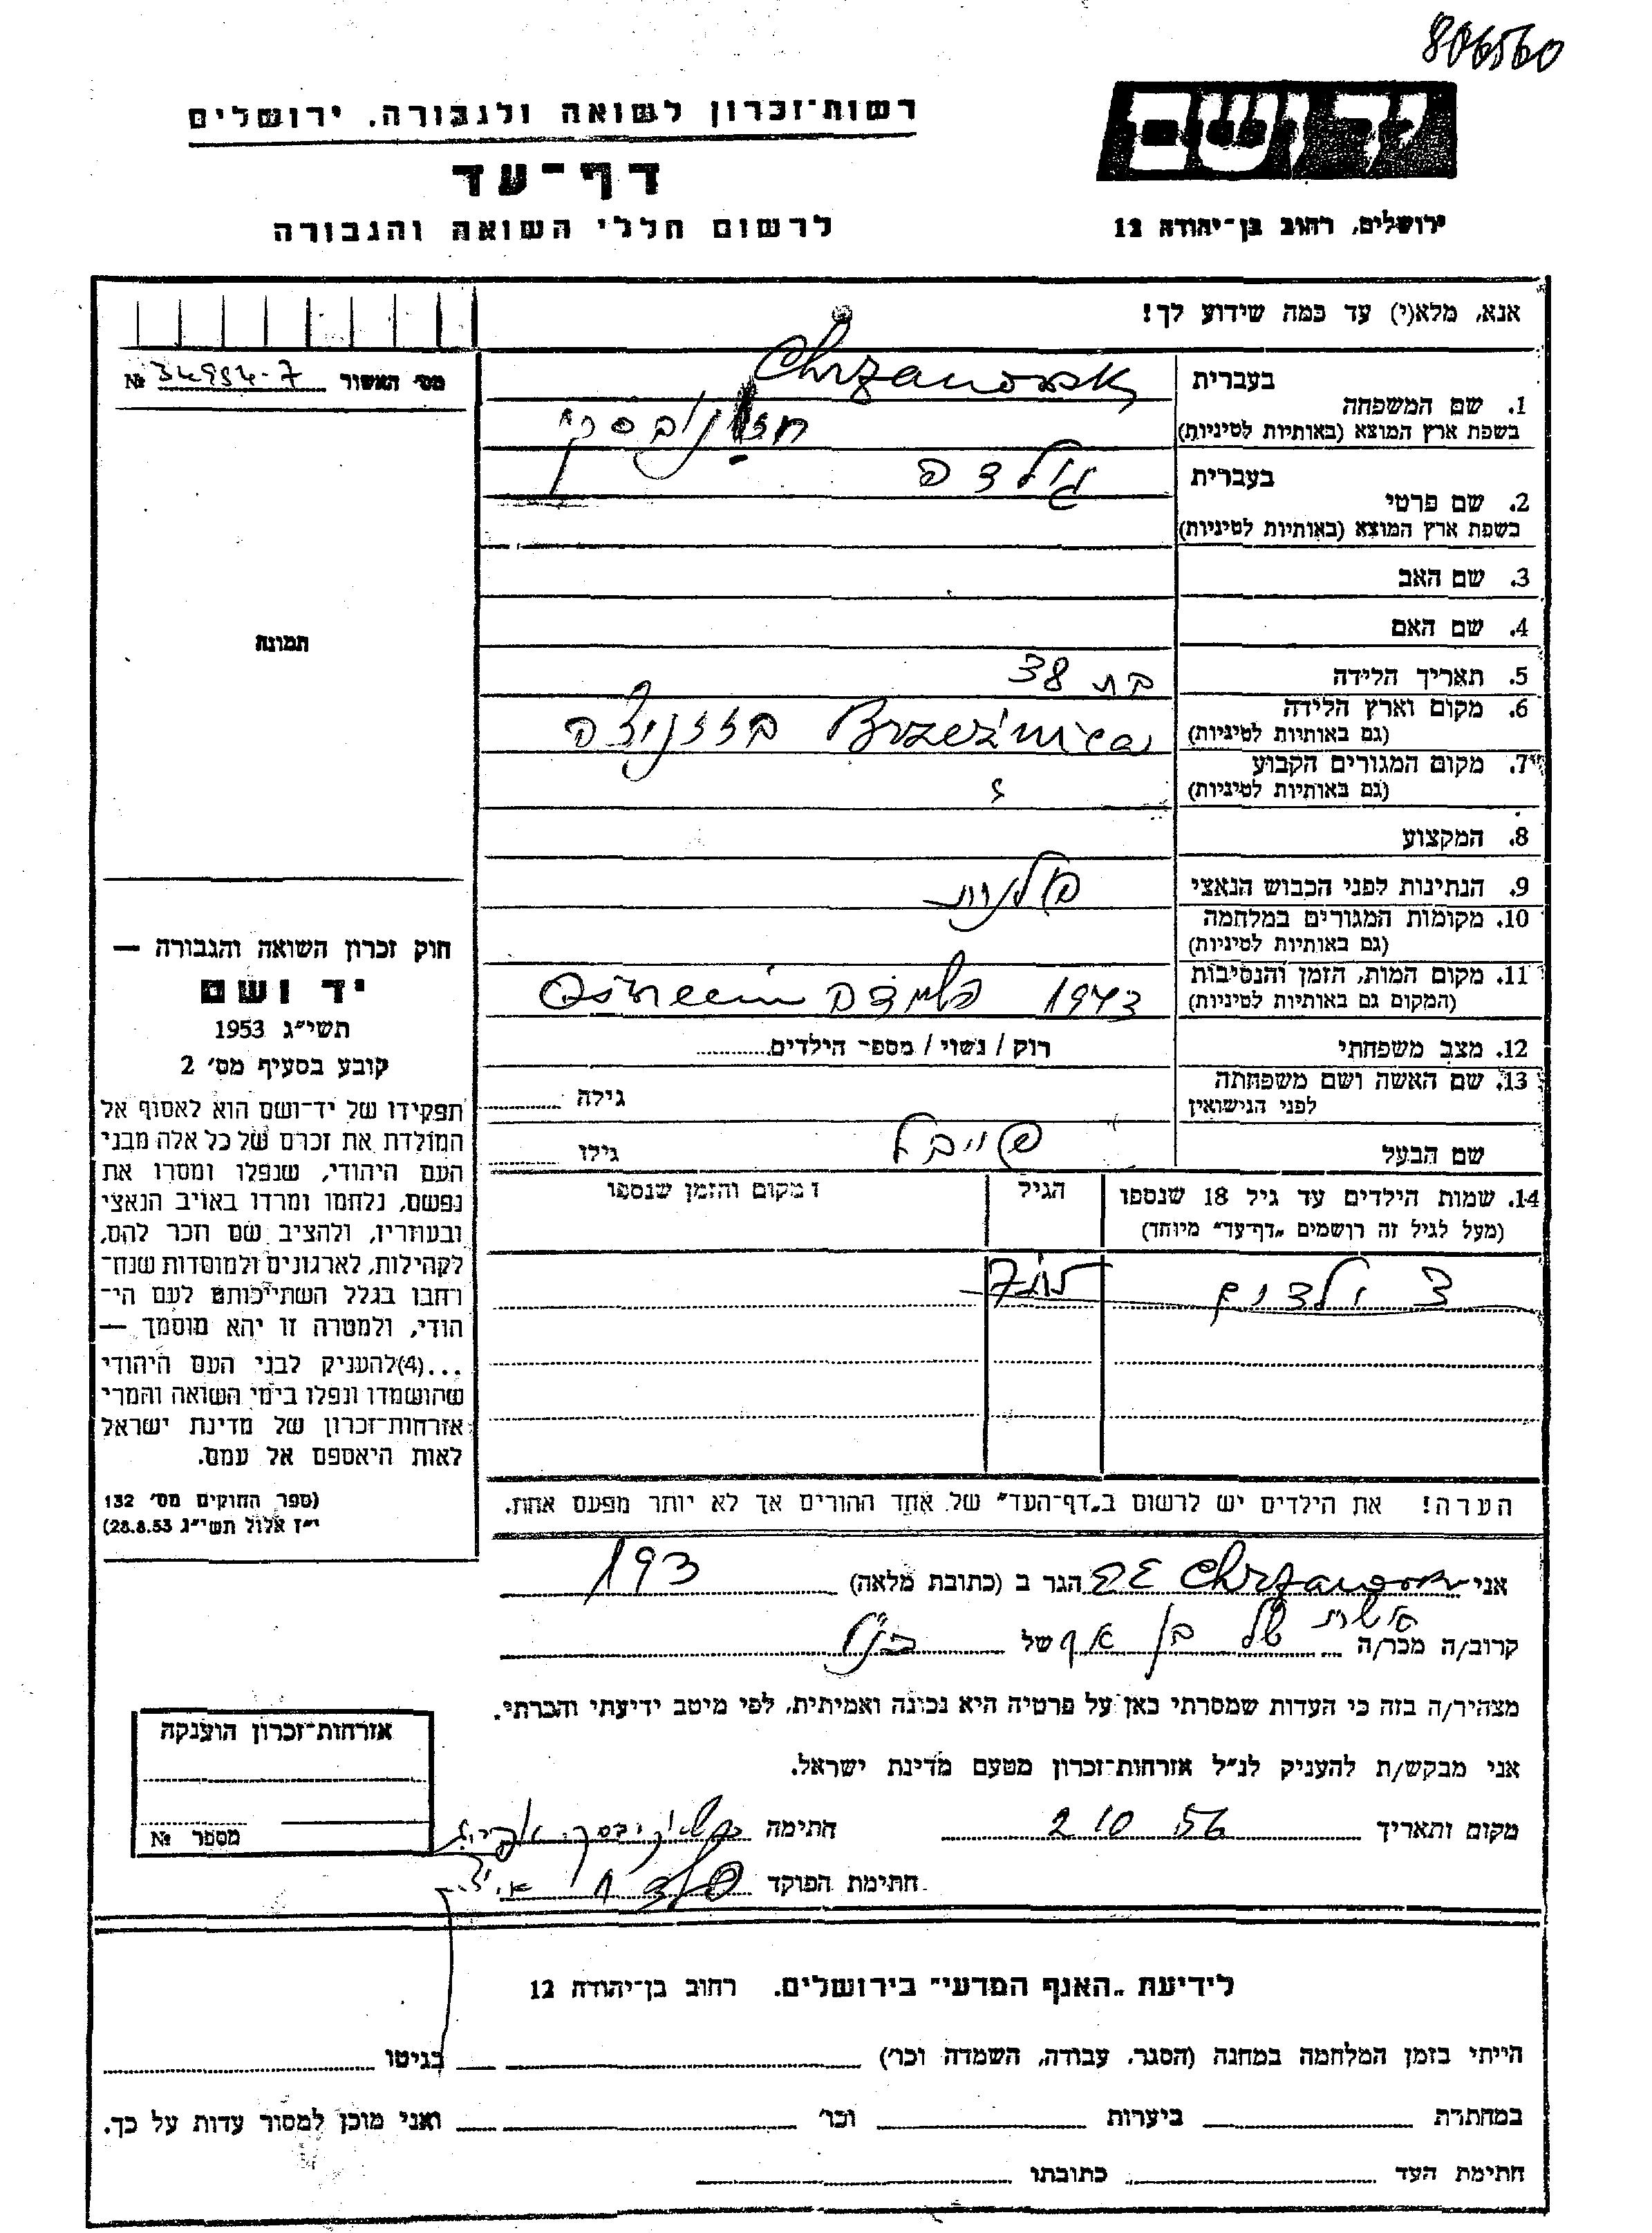 806560
רשות־זכרון לשואה ולגבורה, ירושלים
ידושם
דף־עד
לרשום חללי השואה והגבורה
ירושלים, רחוב בן־יהודה 12
אנא, מלא(י) עד כמה שידוע לך!
מס׳ האשור № 34954-7
בעברית Chrzanowski
1. שם המשפחה
בשפת ארץ המוצא (באותיות לטיניות)
בעברית גולדה
2. שם פרטי
בשפת ארץ המוצא (באותיות לטיניות)
3. שם האב
4. שם האם
תמונה
5. תאריך הלידה בת 38
6. מקום וארץ הלידה Brzeźnica
(גם באותיות לטיניות)
7. מקום המגורים הקבוע
(גם באותיות לטיניות) ?
8. המקצוע
9. הנתינות לפני הכבוש הנאצי פולנית
10. מקומות המגורים במלחמה
(גם באותיות לטיניות)
11. מקום המות, הזמן והנסיבות 1943 השמדה
(המקום גם באותיות לטיניות)
12. מצב משפחתי רוק / נשוי / מספר הילדים
13. שם האשה ושם משפחתה
לפני הנישואין גילה
שם הבעל פייבל גילו
14. שמות הילדים עד גיל 18 שנספו הגיל ומקום והזמן שנספו
(מעל לגיל זה רושמים „דף־עד״ מיוחד)
3 ילדים
הערה! את הילדים יש לרשום ב„דף־העד״ של אחד ההורים אך לא יותר מפעם אחת.
חוק זכרון השואה והגבורה —
יד ושם
תשי״ג 1953
קובע בסעיף מס׳ 2
תפקידו של יד־ושם הוא לאסוף אל
המולדת את זכרם של כל אלה מבני
העם היהודי, שנפלו ומסרו את
נפשם, נלחמו ומרדו באויב הנאצי
ובעוזריו, ולהציב שם וזכר להם,
לקהילות, לארגונים ולמוסדות שנח־
רחבו בגלל השתייכותם לעם הי־
הודי, ולמטרה זו יהא מוסמך —
...(4) להעניק לבני העם היהודי
שהושמדו ונפלו בימי השואה והמרי
אזרחות־זכרון של מדינת ישראל
לאות היאספם אל עמם.
(ספר החוקים מס׳ 132
י״ז אלול תשי״ג 28.8.53)
אני Chrzanowski הגר ב (כתובת מלאה) 193
קרוב/ה מכר/ה אשת של בן אח של הנ״ל
מצהיר/ה בזה כי העדות שמסרתי כאן על פרטיה היא נכונה ואמיתית, לפי מיטב ידיעתי והכרתי.
אני מבקש/ת להעניק לנ״ל אזרחות־זכרון מטעם מדינת ישראל.
מקום ותאריך 2 10 56 חתימה
חתימת הפוקד
אזרחות־זכרון הוענקה
מספר №
לידיעת „האגף המדעי״ בירושלים. רחוב בן־יהודה 12
הייתי בזמן המלחמה במחנה (הסגר, עבודה, השמדה וכו׳) בגיטו
במחתרת ביערות וכו׳ ואני מוכן למסור עדות על כך.
חתימת העד כתובתו